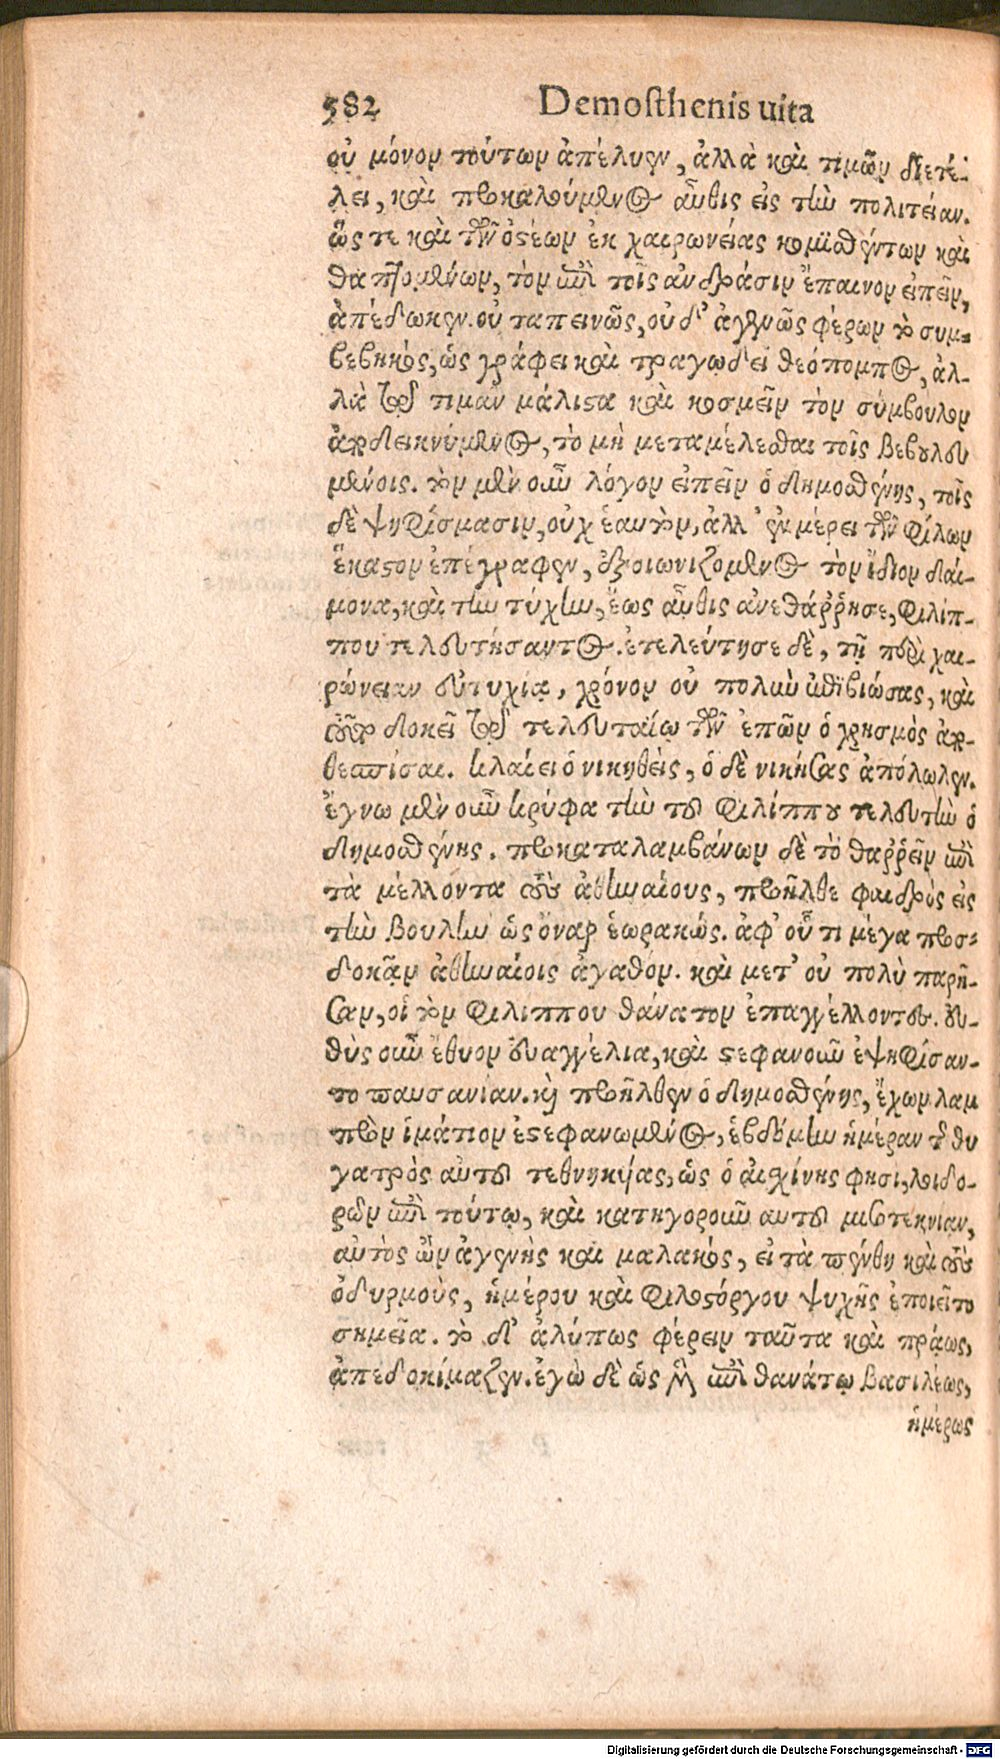 582 Demosthenis uita
οὐ μόνον τούτων ἀπέλυεν, ἀλλὰ καὶ τιμῶν διετέ-
λει, καὶ προκαλούμενος αὖθις εἰς τὴν πολιτείαν.
ὥς τε καὶ τῶν ὀστέων ἐκ χαιρωνείας κομισθέντων καὶ
θαπτομένων, τὸν ἐπὶ τοῖς ἀνδράσιν ἔπαινον εἰπεῖν,
ἀπέδωκεν. οὐ ταπεινῶς, οὐδ' ἀγεννῶς φέρων τὸ συμ-
βεβηκός, ὡς γράφει καὶ τραγῳδεῖ θεόπομπος, ἀλ-
λὰ τῷ τιμᾶν μάλιστα καὶ κοσμεῖν τὸν σύμβουλον
ἀποδεικνύμενος, τὸ μὴ μεταμέλεσθαι τοῖς βεβουλευ
μένοις. τὸν μὲν οὖν λόγον εἰπεῖν ὁ δημοσθένης, τοῖς
δὲ ψηφίσμασιν, οὐχ ἑαυτὸν, ἀλλ' ἐν μέρει τῶν φίλων
ἕκαστον ἐπέγραφεν, ἐξοιωνιζομενος τὸν ἴδιον δαί-
μονα, καὶ τὴν τύχην, ἕως αὖθις ἀνεθάῤῥησε, φιλίπ-
που τελευτήσαντος. ἐτελεύτησε δὲ, τῇ περὶ χαι-
ρώνειαν εὐτυχίᾳ, χρόνον οὐ πολὺν ἐπιβιώσας, καὶ
τοῦτο δοκεῖ τῷ τελευταίῳ τῶν ἐπῶν ὁ χρησμὸς ἀπο-
θεσπίσαι. κλαίει ὁ νικηθεὶς, ὁ δὲ νικήσας ἀπόλωλεν.
ἔγνω μὲν οὖν κρύφα τὴν τοῦ φιλίππου τελευτὴν ὁ
δημοσθένης. προκαταλαμβάνων δὲ τὸ θαῤῥεῖν ἐπὶ
τὰ μέλλοντα τοὺς ἀθηναίους, προῆλθε φαιδρὸς εἰς
τὴν βουλὴν ὡς ὄναρ ἑωρακώς. ἀφ' οὗ τι μέγα προσ-
δοκᾷν ἀθηναίοις ἀγαθόν. καὶ μετ' οὐ πολὺ παρῆ-
σαν, οἱ τὸν φιλιππου θάνατον ἐπαγγέλλοντες. εὐ-
θὺς οὖν ἔθυον εὐαγγέλια, καὶ στεφανοῦν ἐψηφίσαν-
το παυσανίαν. καὶ προῆλθεν ὁ δημοσθένης, ἔχων λαμ
πρὸν ἱμάτιον ἐστεφανωμένος, ἑβδόμην ἡμέραν τῆς θυ
γατρὸς αὐτοῦ τεθνηκυίας, ὡς ὁ αἰσχίνης φησι, λοιδο-
ρῶν ἐπὶ τούτῳ, καὶ κατηγοροῦν αυτοῦ μισοτεκνίαν,
αὐτὸς ὢν ἀγεννὴς καὶ μαλακός, εἰ τὰ πένθη καὶ τοὺς
ὀδυρμοὺς, ἡμέρου καὶ φιλοστόργου ψυχῆς ἐποιεῖτο
σημεῖα. τὸ δ' ἀλύπως φέρειν ταῦτα καὶ πράως,
ἀπεδοκίμαζεν. ἐγὼ δὲ ὡς μὲν ἐπὶ θανάτῳ βασιλέως,
ἡμέρως
Digitalisierung gefördert durch die Deutsche Forschungsgemeinschaft - DFG